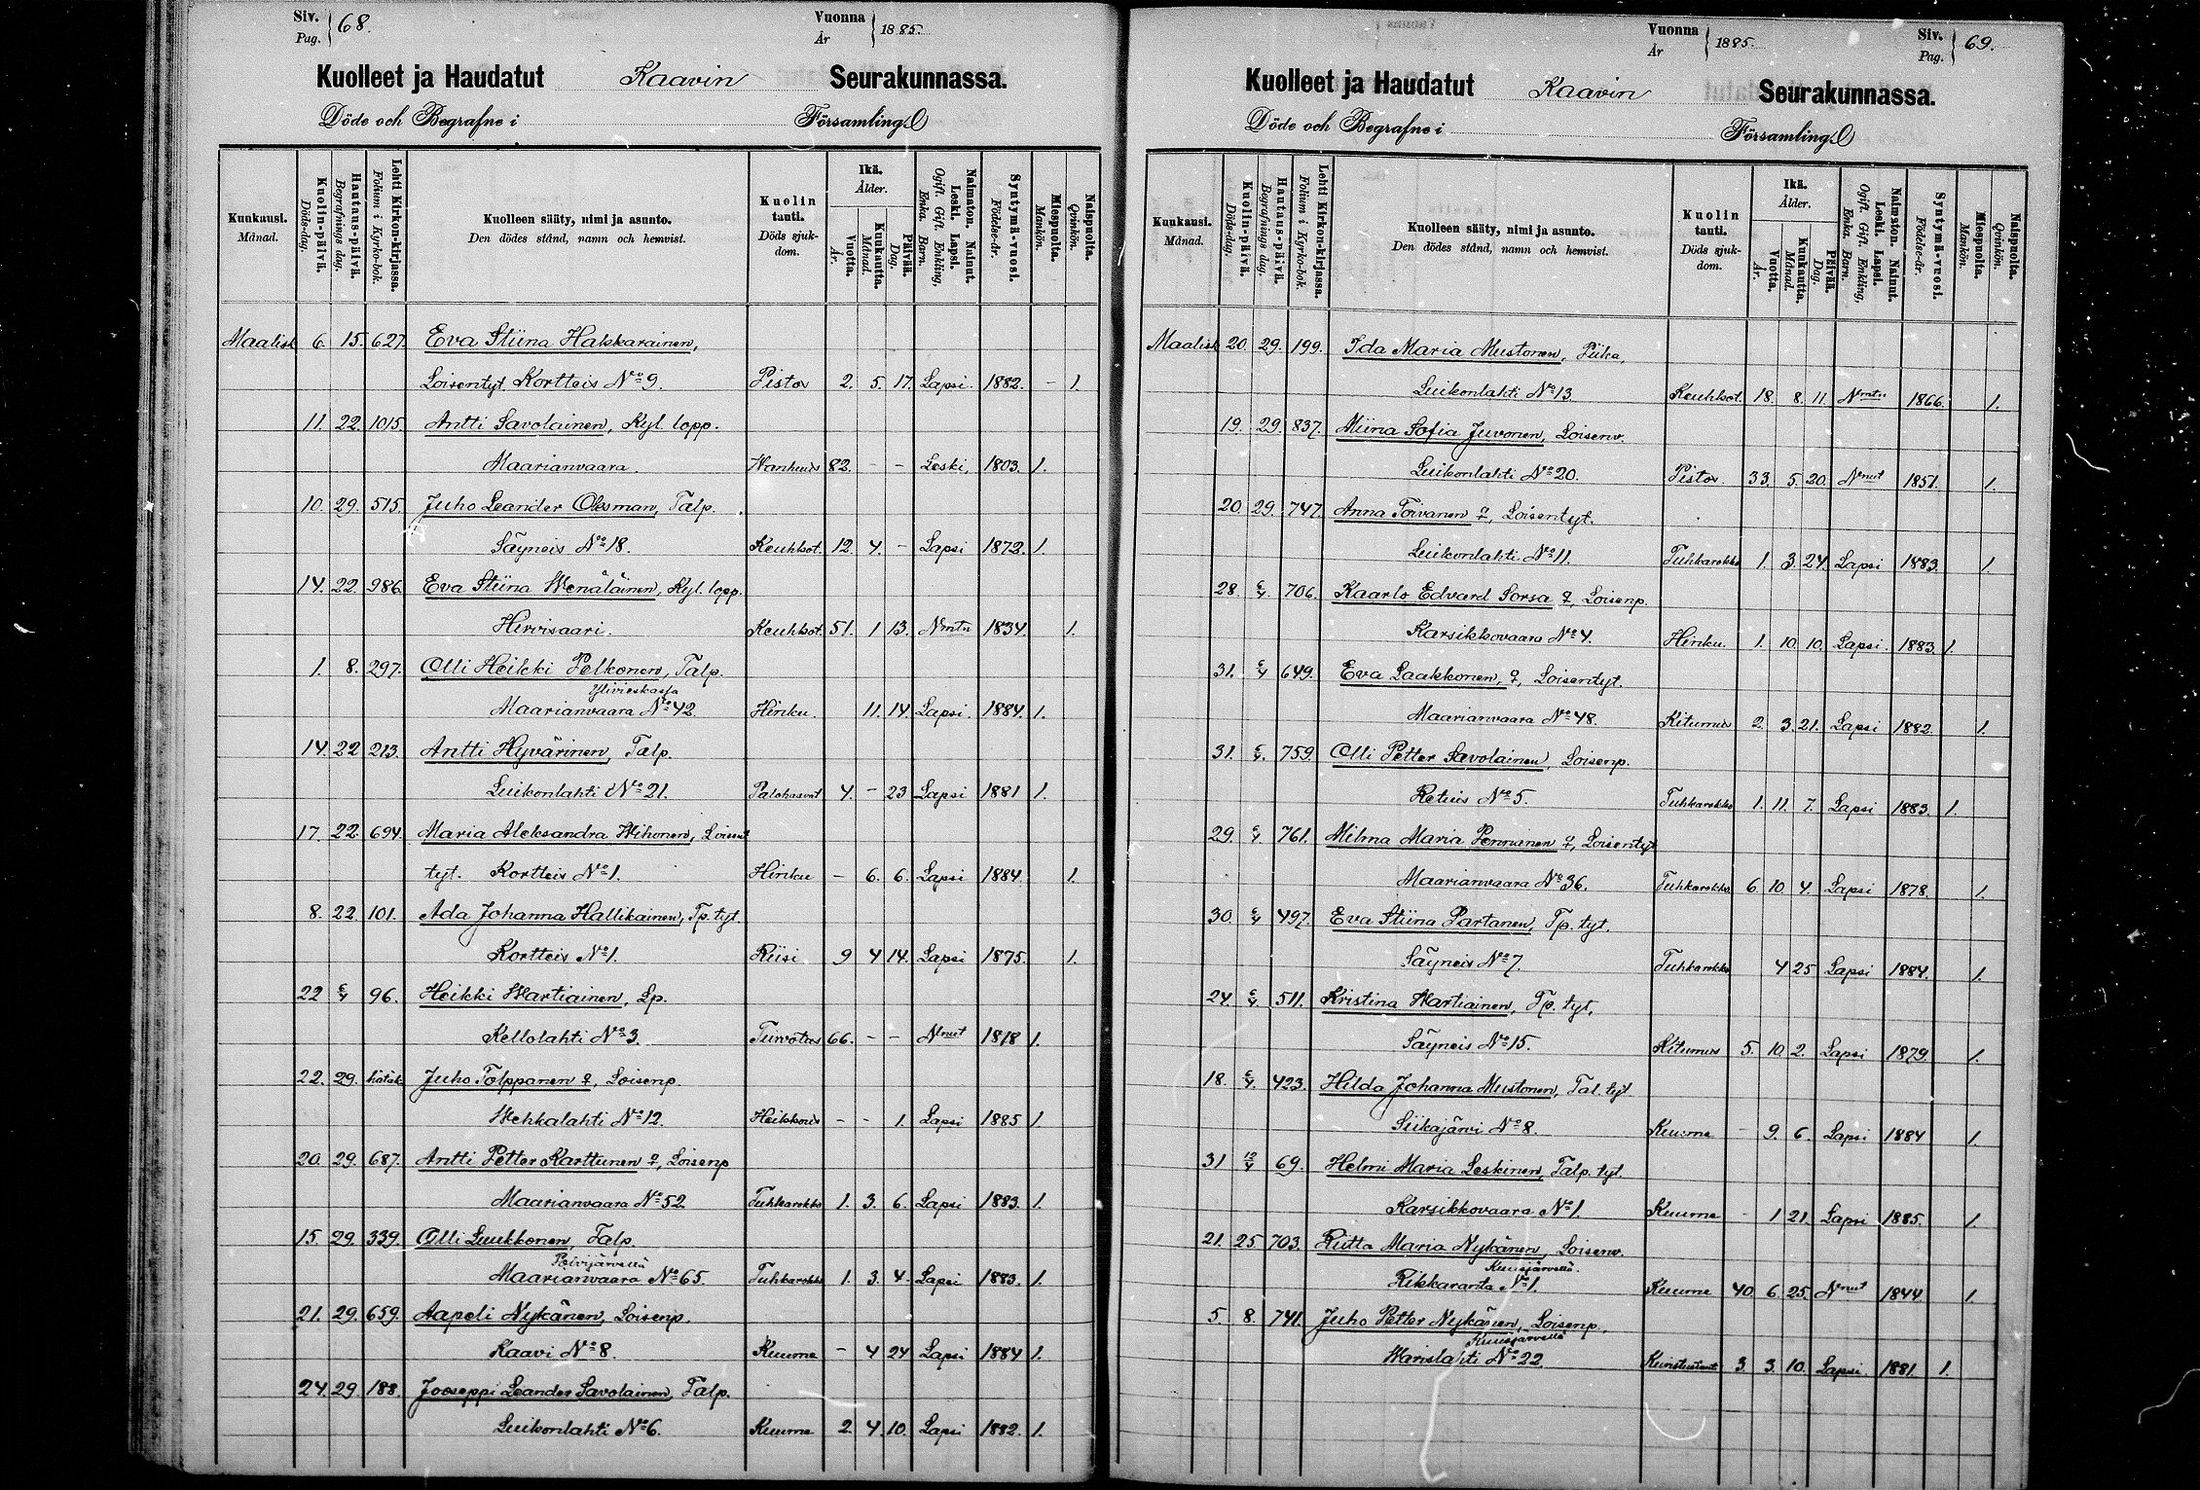 Siv. Pag. 68. Vuonna År 1885.
Kuolleet ja Haudatut Kaavin Seurakunnassa.
Döde och Begrafne i Församling
Kuukausi. Månad.
Kuolin-päivä. Döds-dag.
Hautaus-päivä. Begrafnings dag.
Lehti Kirkon-kirjassa. Folium i Kyrko-bok.
Kuolleen sääty, nimi ja asunto. Den dödes stånd, namn och hemvist.
Kuolin tauti. Döds sjuk-dom.
Ikä. Ålder.
Vuotta. År.
Kuukautta. Månad.
Päivää. Dag.
Naimaton. Nainut. Leski. Lapsi. Ogift. Gift. Enkling, Enka. Barn.
Syntymä-vuosi. Födelse-år.
Miespuolta. Mankön.
Naispuolta. Qvinkön.
Maalisk 6. 15. 627. Eva Stiina Hakkarainen,
Loisentyt Kortteis No 9. Pistos 2. 5. 17. Lapsi 1882. - 1.
11. 22. 1015. Antti Savolainen, Kyl. lopp.
Maarianvaara. Vanhuus 82. - - Leski, 1803. 1.
10. 29. 515. Juho Leander Oksman, Talp.
Säyneis No 18. Keuhkot. 12. 4. - Lapsi 1872. 1.
14. 22. 986. Eva Stiina Wenäläinen, Kyl. lopp.
Hirvisaari. Keuhkot. 51. 1 13. Nmtn 1834. 1.
1. 8. 297. Olli Heikki Pelkonen, Talp.
Ylivieskassa
Maarianvaara No 42. Hinku. 11. 14. Lapsi. 1884. 1.
14. 22 213. Antti Hyvärinen, Talp.
Luikonlahti No 21. Palohaavat 4. - 23 Lapsi 1881 1.
17. 22. 694. Maria Aleksandra Wihonen, Loisen
tyt. Kortteis No 1. Hinku - 6. 6. Lapsi 1884. 1.
8. 22. 101. Ada Johanna Hallikainen, Tp. tyt.
Kortteis No 1. Riisi 9 4 14. Lapsi 1875. 1.
22 5/4 96. Heikki Wartiainen, Lp.
Kellolahti No 3. Turvotus 66. - - Nnut 1818 1.
22. 29. hätäk. Juho Tolppanen ♀, Loisenp.
Wehkalahti No 12. Heikkous - - 1. Lapsi 1885 1.
20. 29. 687. Antti Petter Karttunen ♀, Loisenp
Maarianvaara No 52 Tuhkarokko 1. 3. 6. Lapsi 1883. 1.
15. 29. 339. Olli Luukkonen, Talp.
Polvijärvellä
Maarianvaara No 65. Tuhkarokko 1. 3. 4. Lapsi 1883. 1.
21. 29. 659. Aapeli Nykänen, Loisenp.
Kaavi No 8. Kuume - 4 24 Lapsi 1884 1.
24. 29. 188. Jooseppi Leander Savolainen, Talp.
Luikonlahti No 6. Kuume 2. 4. 10. Lapsi 1882. 1.
Vuonna År 1885. Siv. Pag. 69.
Kuolleet ja Haudatut Kaavin Seurakunnassa.
Döde och Begrafne i Församling
Kuukausi. Månad.
Kuolin-päivä. Döds-dag.
Hautaus-päivä. Begrafnings dag.
Lehti Kirkon-kirjassa. Folium i Kyrko-bok.
Kuolleen sääty, nimi ja asunto. Den dödes stånd, namn och hemvist.
Kuolin tauti. Döds sjuk-dom.
Ikä. Ålder.
Vuotta. År.
Kuukautta. Månad.
Päivää. Dag.
Naimaton. Nainut. Leski. Lapsi. Ogift. Gift. Enkling, Enka. Barn.
Syntymä-vuosi. Födelse-år.
Miespuolta. Mankön.
Naispuolta. Qvinkön.
Maalisk 20. 29. 199. Ida Maria Mustonen, Piika,
Luikonlahti No 13. Keuhkot. 18. 8. 11. Nmtn 1866. 1.
19. 29. 837. Miina Sofia Juvonen, Loisenv.
Luikonlahti No 20. Pistos. 33. 5. 20. Nnut 1851. 1.
20. 29. 747. Anna Toivanen ♀, Loisentyt.
Luikonlahti No 11. Tuhkarokko 1. 3. 24. Lapsi 1883. 1.
28. 6/4 706. Kaarlo Edvard Sorsa ♀, Loisenp.
Karsikkovaara No 4. Hinku. 1. 10. 10. Lapsi. 1883. 1.
31. 5/4 649. Eva Laakkonen, ♀, Loisentyt.
Maarianvaara No 48. Kitumus 2. 3. 21. Lapsi 1882. 1.
31. 5/4. 759. Olli Petter Savolainen, Loisenp.
Retuis No 5. Tuhkarokko 1. 11. 7. Lapsi 1883. 1.
29. 5/4 761. Milma Maria Pennanen ♀, Loisentyt
Maarianvaara No 36. Tuhkarokko. 6. 10 4. Lapsi 1878. 1.
30. 5/4 497. Eva Stiina Partanen, Tp. tyt.
Säyneis No 7. Tuhkarokko 4 25 Lapsi 1884. 1.
24. 5/4. 511. Kristina Wartiainen, Tp. tyt,
Säyneis No 15. Kitumus 5. 10 2. Lapsi 1879. 1.
18. 5/4. 423. Hilda Johanna Mustonen, Tal. tyt.
Siikajärvi No 8. Kuume - 9. 6. Lapsi 1884 1.
31 12/4 69. Helmi Maria Leskinen, Talp. tyt.
Karsikkovaara No 1. Kuume - 1 21. Lapsi 1885. 1.
21. 25. 703. Riitta Maria Nykänen, Loisenv.
Kuusjärvellä.
Rikkaranta No 1. Kuume 40. 6. 25. Nnut 1844. 1.
5. 8. 741. Juho Petter Nykänen, Loisenp,
Kuusjärvellä
Warislahti No 22. Kuristustaut 3 3. 10. Lapsi. 1881. 1.